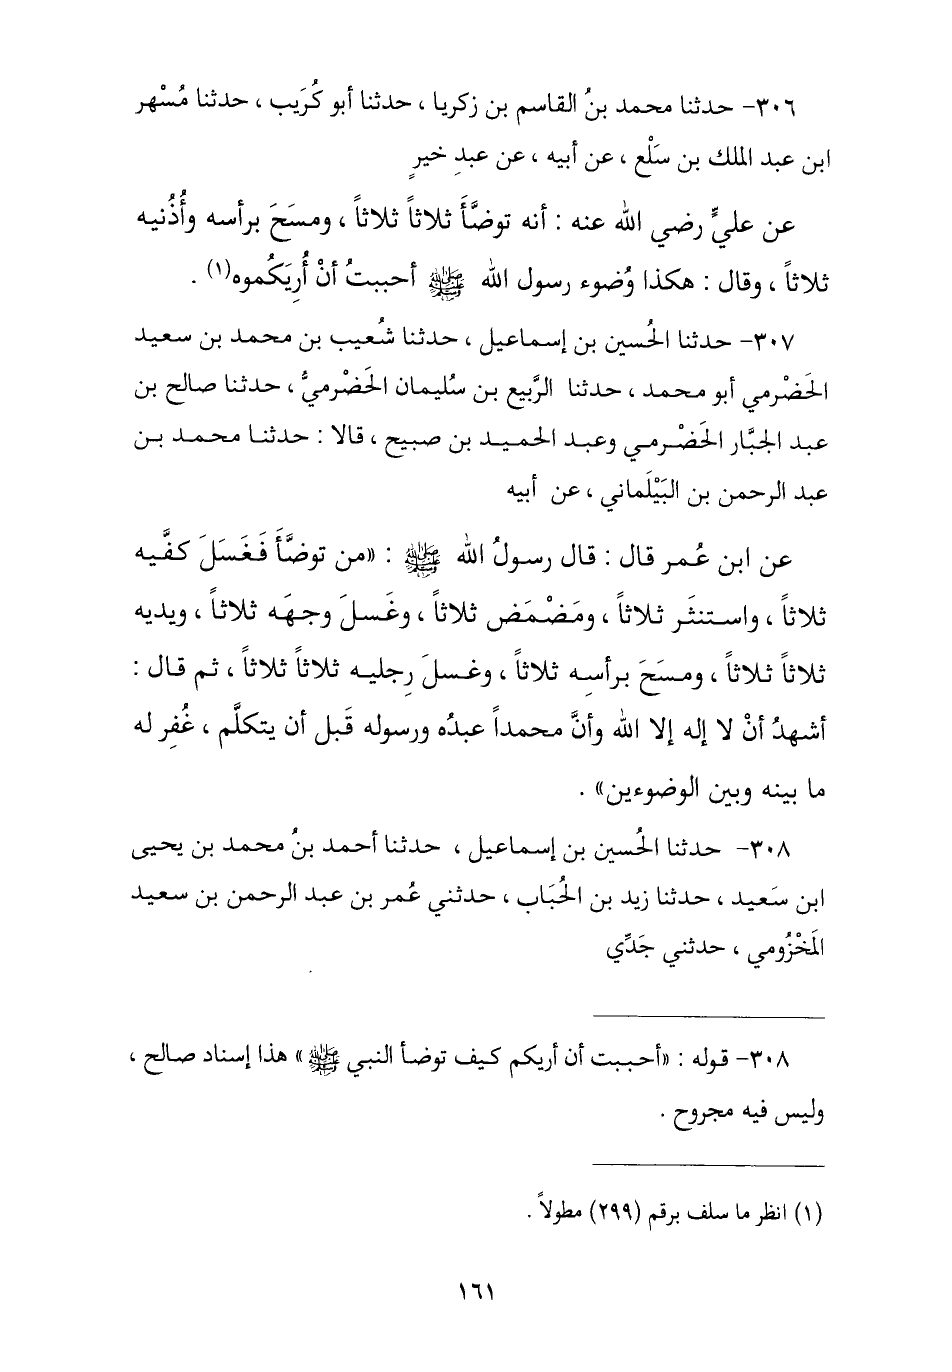 ٣٠٦- حدثنا محمد بنُ القاسم بن زكريا ، حدثنا أبو كُرَيب ، حدثنا مُسْهر
ابن عبد الملك بن سَلْع ، عن أبيه ، عن عبدِ خيرٍ
عن عليٍّ رضي الله عنه : أنه توضَّأَ ثلاثاً ثلاثاً ، ومسَحَ برأسه وأُذُنيه
ثلاثاً ، وقال : هكذا وُضوء رسول الله ﷺ أحببتُ أنْ أُرِيَكُموه(١) .
٣٠٧- حدثنا الحُسين بن إسماعيل ، حدثنا شُعيب بن محمد بن سعيد
الحَضْرمي أبو محمد ، حدثنا الرَّبيع بن سُليمان الحَضْرميُّ ، حدثنا صالح بن
عبد الجبَّار الحَضْرمي وعبد الحميد بن صبيح ، قالا : حدثنا محمد بن
عبد الرحمن بن البَيْلَماني ، عن أبيه
عن ابن عُمر قال : قال رسولُ الله ﷺ : «من توضَّأَ فَغَسَلَ كفَّيه
ثلاثاً ، واستنثَر ثلاثاً ، ومَضْمَض ثلاثاً ، وغَسلَ وجهَه ثلاثاً ، ويديه
ثلاثاً ثلاثاً ، ومسَحَ برأسِه ثلاثاً ، وغسلَ رِجليه ثلاثاً ثلاثاً ، ثم قال :
أشهدُ أنْ لا إله إلا الله وأنَّ محمداً عبدُه ورسوله قَبل أن يتكلَّم ، غُفِر له
ما بينه وبين الوضوءين» .
٣٠٨- حدثنا الحُسين بن إسماعيل ، حدثنا أحمد بنُ محمد بن يحيى
ابن سَعيد ، حدثنا زيد بن الحُبَاب ، حدثني عُمر بن عبد الرحمن بن سعيد
المَخْزُومي ، حدثني جَدِّي
٣٠٨- قوله : «أحببت أن أريكم كيف توضأ النبي ﷺ» هذا إسناد صالح ،
وليس فيه مجروح .
(١) انظر ما سلف برقم (٢٩٩) مطولاً .
١٦١